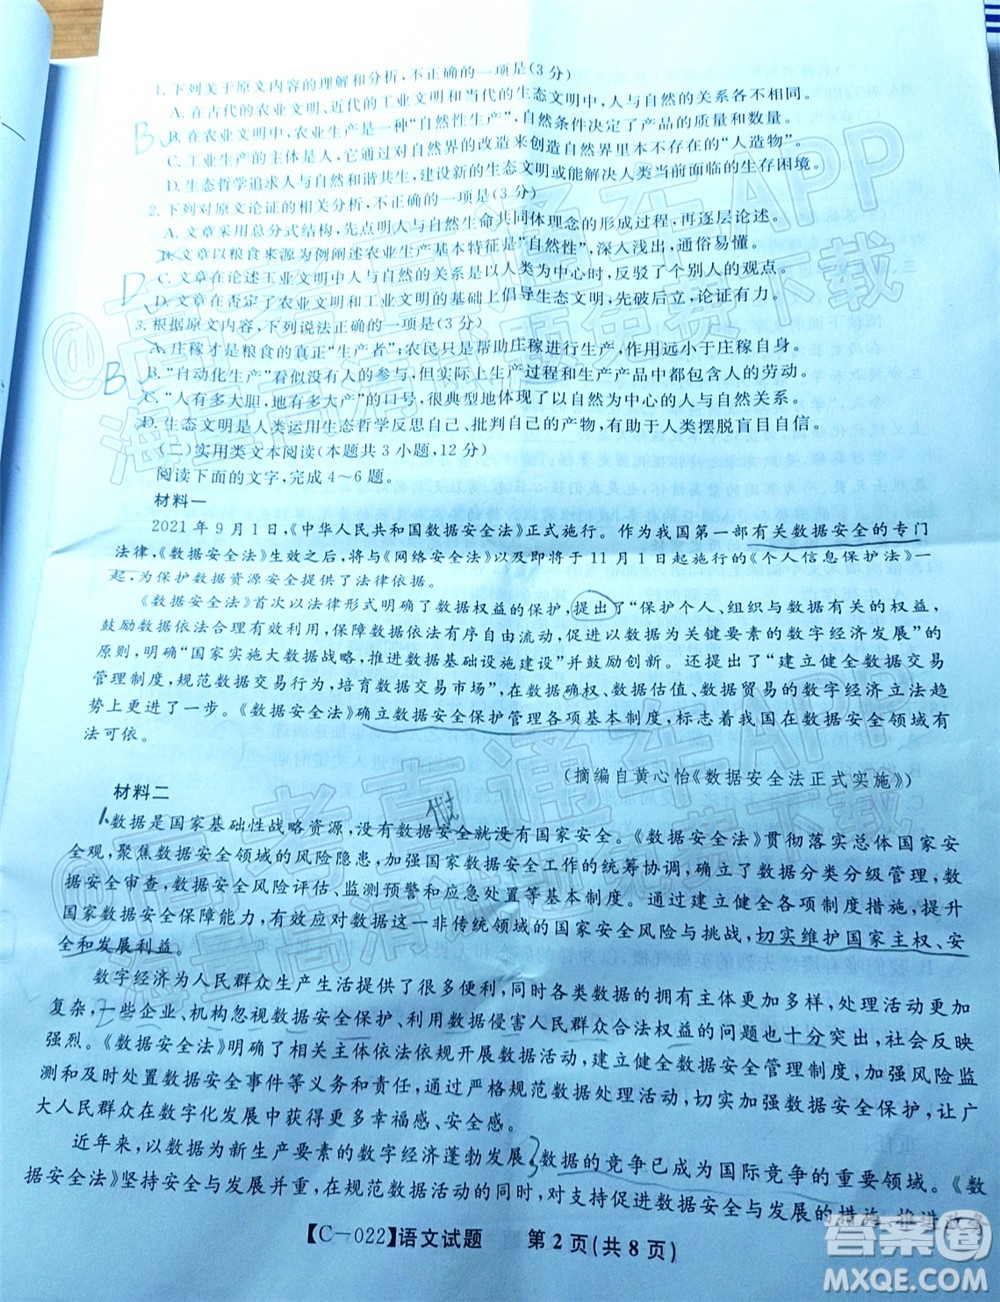 1.下列关于原文内容的理解和分析,不正确的一项是(3分)
A.在古代的农业文明、近代的工业文明和当代的生态文明中,人与自然的关系各不相同。
B
B.在农业文明中,农业生产是一种“自然性生产”,自然条件决定了产品的质量和数量。
C.工业生产的主体是人,它通过对自然界的改造来创造自然界里本不存在的“人造物”。
D.生态哲学追求人与自然和谐共生,建设新的生态文明能够解决人类当前面临的生存困境。
2.下列对原文论证的相关分析,不正确的一项是(3分)
A.文章采用总分式结构,先点明人与自然生命共同体理念的形成过程,再逐层论述。
B.文章以粮食来源为例阐述农业生产基本特征是“自然性”,深入浅出,通俗易懂。
C.文章在论述工业文明中人与自然的关系是以人类为中心时,反驳了个别人的观点。
D
D.文章在否定了农业文明和工业文明的基础上倡导生态文明,先破后立,论证有力。
3.根据原文内容,下列说法正确的一项是(3分)
A.庄稼是粮食的真正“生产者”;农民只是帮助庄稼进行生产,作用远小于庄稼自身。
B
B.“自动化生产”看似没有人的参与,但实际上生产过程和生产产品中都包含人的劳动。
C.“人有多大胆,地有多大产”的口号,很典型地体现了以自然为中心的人与自然关系。
D.生态文明是人类运用生态哲学反思自己、批判自己的产物,有助于人类摆脱盲目自信。
(二)实用类文本阅读(本题共3小题,12分)
阅读下面的文字,完成4~6题。
材料一
2021年9月1日,《中华人民共和国数据安全法》正式施行。作为我国第一部有关数据安全的专门
法律,《数据安全法》生效之后,将与《网络安全法》以及即将于11月1日起施行的《个人信息保护法》一
起,为保护数据资源安全提供了法律依据。
《数据安全法》首次以法律形式明确了数据权益的保护,提出了“保护个人、组织与数据有关的权益,
鼓励数据依法合理有效利用,保障数据依法有序自由流动,促进以数据为关键要素的数字经济发展”的
原则,明确“国家实施大数据战略,推进数据基础设施建设”并鼓励创新。还提出了“建立健全数据交易
管理制度,规范数据交易行为,培育数据交易市场”,在数据估值、数据贸易的数字经济立法趋
势上更进了一步。《数据安全法》确立数据安全保护管理各项基本制度,标志着我国在数据安全领域有
法可依。
(摘编自黄心怡《数据安全法正式实施》)
材料二
数据是国家基础性战略资源,没有数据安全就没有国家安全。《数据安全法》贯彻落实总体国家安
全观,聚焦数据安全领域的风险隐患,加强国家数据安全工作的统筹协调,确立了数据分类分级管理,数
据安全审查,数据安全风险评估、监测预警和应急处置等基本制度。通过建立健全各项制度措施,提升
国家数据安全保障能力,有效应对数据这一非传统领域的国家安全风险与挑战,切实维护国家主权、安
全和发展利益。
数字经济为人民群众生产生活提供了很多便利,同时各类数据的拥有主体更加多样,处理活动更加
复杂,一些企业、机构忽视数据安全保护、利用数据侵害人民群众合法权益的问题也十分突出,社会反映
强烈。《数据安全法》明确了相关主体依法依规开展数据活动,建立健全数据安全管理制度,加强风险监
测和及时处置数据安全事件等义务和责任,通过严格规范数据处理活动,切实加强数据安全保护,让广
大人民群众在数字化发展中获得更多幸福感、安全感。
近年来,以数据为新生产要素的数字经济蓬勃发展,数据的竞争已成为国际竞争的重要领域。《数
据安全法》坚持安全与发展并重,在规范数据活动的同时,对支持促进数据安全与发展的措施、推进
【C-022】语文试题 第2页(共8页)
@高考直通车APP
海量高清资源免费下载
答案圈
MXQE.COM